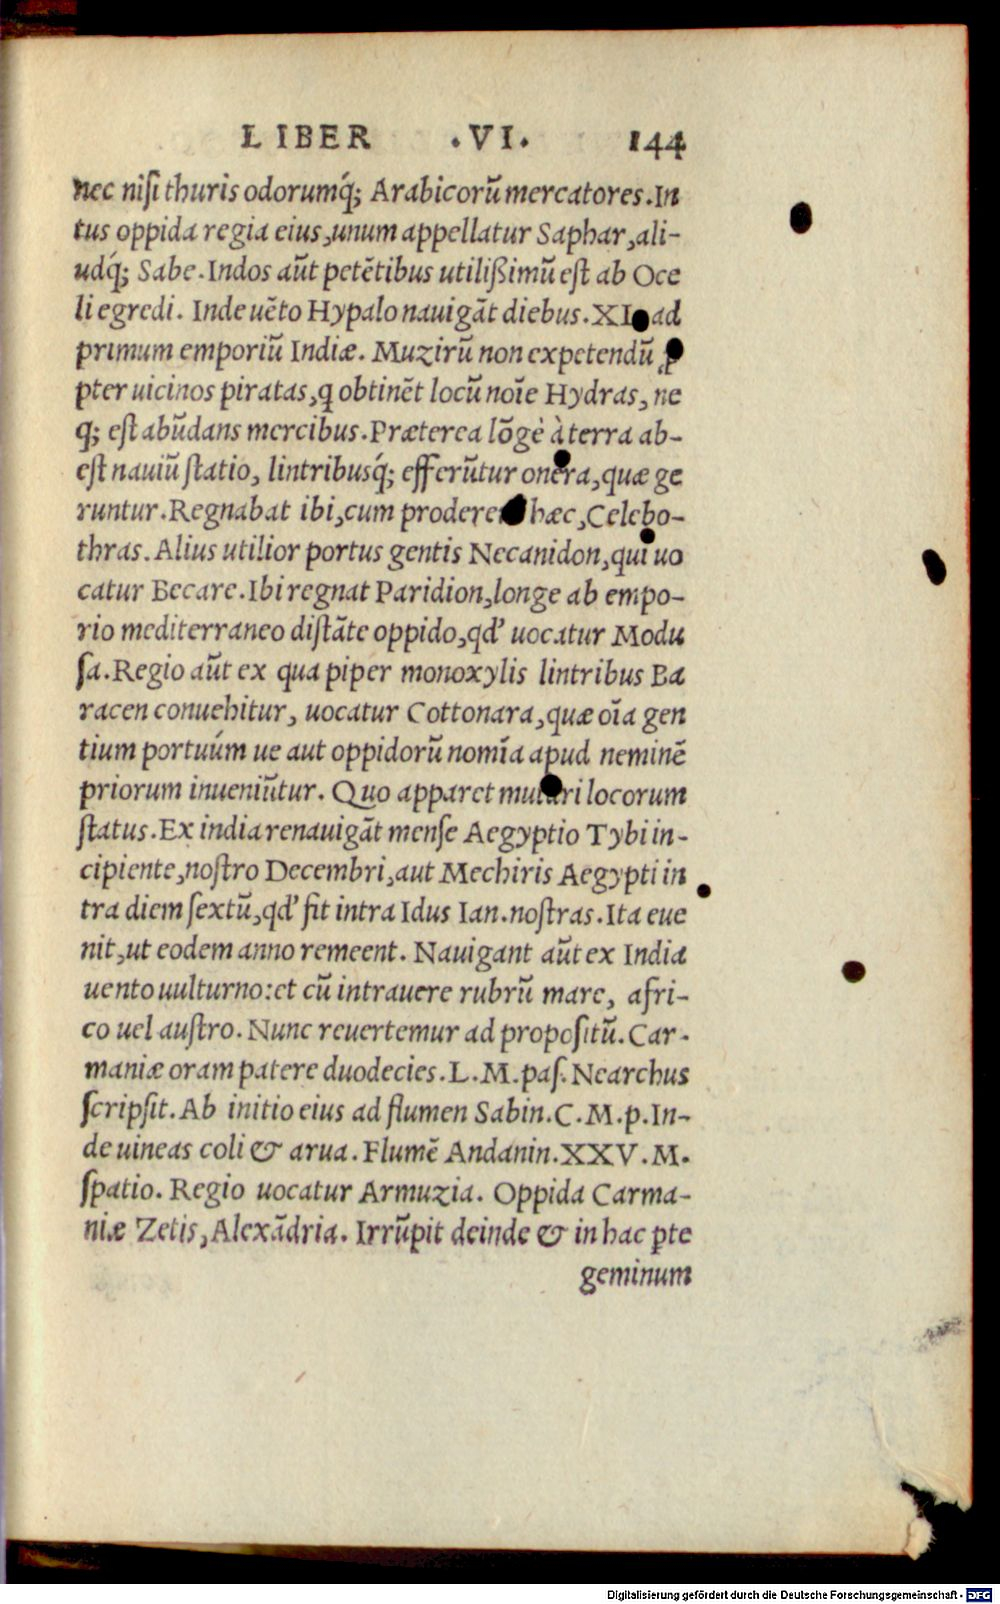 LIBER .VI. 144
nec nisi thuris odorumq́; Arabicorū mercatores. In
tus oppida regia eius, unum appellatur Saphar, ali-
udq́; Sabe. Indos aūt petētibus utilißimū est ab Oce
li egredi. Inde uēto Hypalo nauigāt diebus. XL ad
primum emporiū Indiæ. Muzirū non expetendū ꝓ
pter uicinos piratas, q obtinēt locū noīe Hydras, ne
q; est abūdans mercibus. Præterea lōgè à terra ab-
est nauiū statio, lintribusq́; efferūtur onera, quæ ge
runtur. Regnabat ibi, cum proderem hæc, Celebo-
thras. Alius utilior portus gentis Necanidon, qui uo
catur Becare. Ibi regnat Paridion, longe ab empo-
rio mediterraneo distāte oppido, qd' uocatur Modu
sa. Regio aūt ex qua piper monoxylis lintribus Ba
racen conuehitur, uocatur Cottonara, quæ oīa gen
tium portuúm ue aut oppidorū nomīa apud neminē
priorum inueniūtur. Quo apparet mutari locorum
status. Ex india renauigāt mense Aegyptio Tybi in-
cipiente, nostro Decembri, aut Mechiris Aegypti in
tra diem sextū, qd' fit intra Idus Ian. nostras. Ita eue
nit, ut eodem anno remeent. Nauigant aūt ex India
uento uulturno: et cū intrauere rubrū mare, afri-
co uel austro. Nunc reuertemur ad propositū. Car-
maniæ oram patere duodecies. L. M. pas. Nearchus
scripsit. Ab initio eius ad flumen Sabin. C. M. p. In-
de uineas coli & arua. Flumē Andanin. XXV. M.
spatio. Regio uocatur Armuzia. Oppida Carma-
niæ Zetis, Alexādria. Irrūpit deinde & in hac ꝑte
geminum
Digitalisierung gefördert durch die Deutsche Forschungsgemeinschaft - DFG